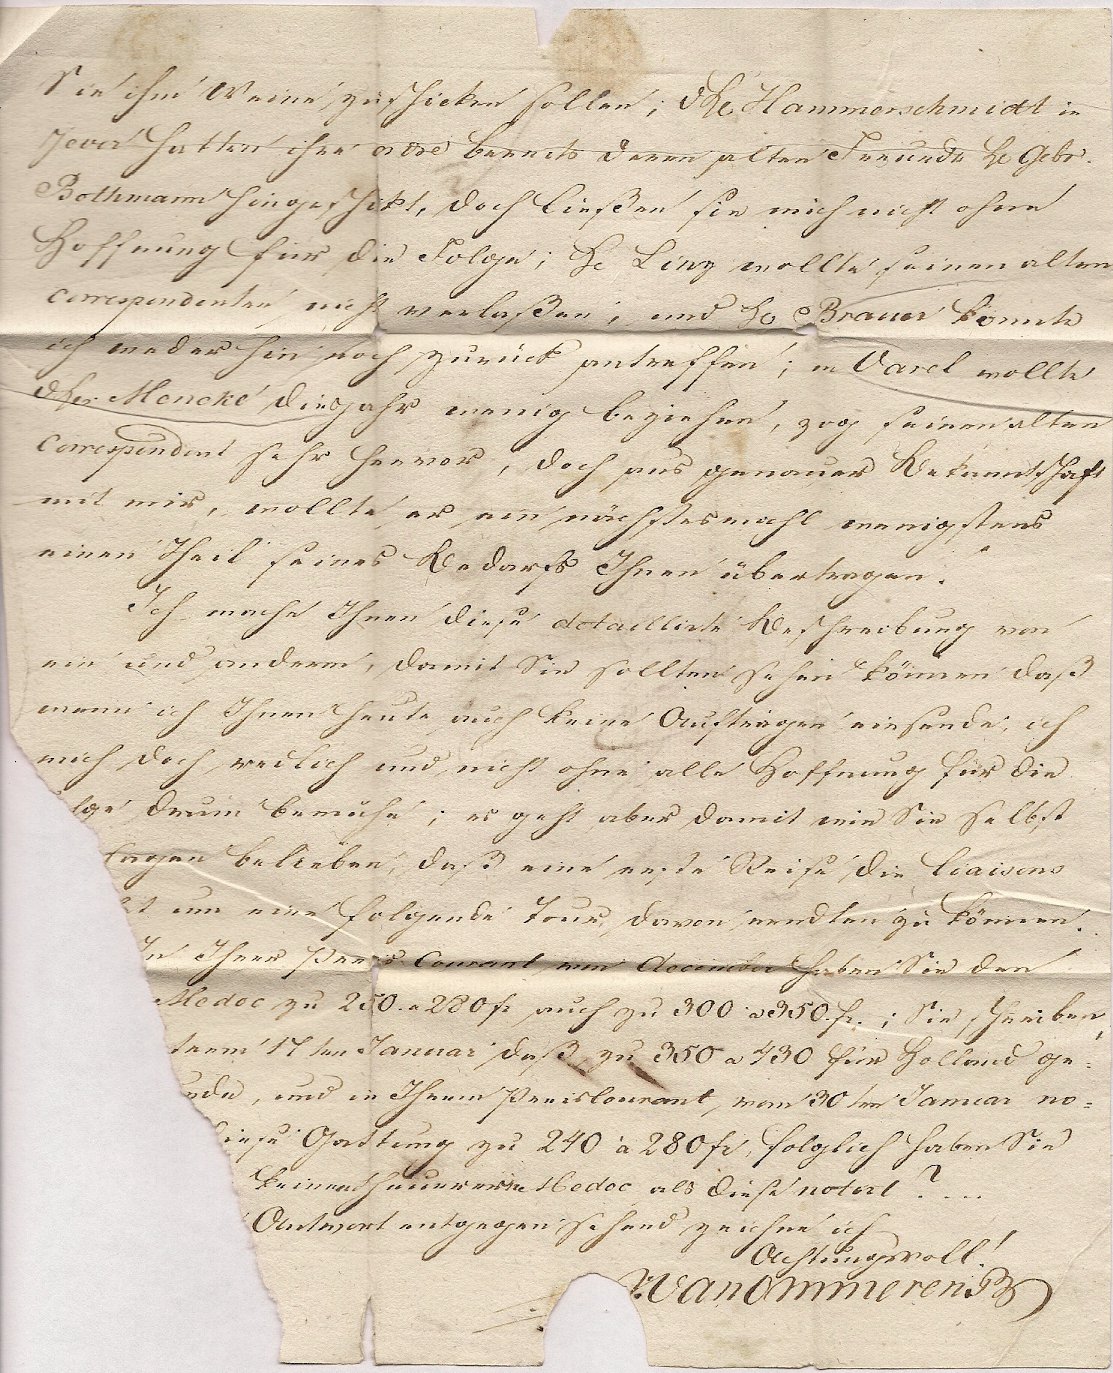 Sie ihm Weine zuschicken sollen; dHe Hammerschmidt in
Jever hatten ihre ordre bereits deren alten Freunde He Gebr.
Bothmann hingeschikt, doch ließen sie mich nicht ohne
Hoffnung für die Folge; He Linz wollte seinen alten
correspondenten nicht verlaßen, und He Brauer konnte
ich weder hin noch zurück antreffen; in Varel wollte
dHer Mencke diesjahr wenig beziehen, zog seinen alten
correspondent sehr hervor, doch aus genauer Bekanntschaft
mit mir, wollte er ein nächstesmahl wenigstens
einen Theil seines Bedarfs Ihnen übertragen.
Ich mache Ihnen diese detaillirte Beschreibung von
ein und anderm, damit Sie sollten sehen können daß
wenn ich Ihnen heute auch keine Aufträgen einsende, ich
mich doch redlich und nicht ohne alle Hoffnung für die
lge drum bemühe; es geht aber damit wie Sie selbst
sagen belieben, daß eine erste Reise die liaisons
ht um eine folgende Tour davon erndten zu können.
In Ihrer Preis Courant von December haben Sie den
Medoc zu 250 a 280 fr auch zu 300 a 350 fr.; Sie schreiben
term 17ten Januar daß zu 350 a 430 für Holland ge=
nde, und in Ihrem Preiscourant vom 30ten Januar no=
diese Gattung zu 240 à 280 fr, folglich haben Sie
keinen theureren Medoc als diese notirt? ...
Antwort entgegen sehend zeichne ich
Achtungsvoll!
W van Ommeren